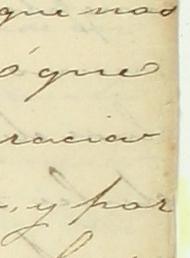 que nos
ó que
racion
, y por